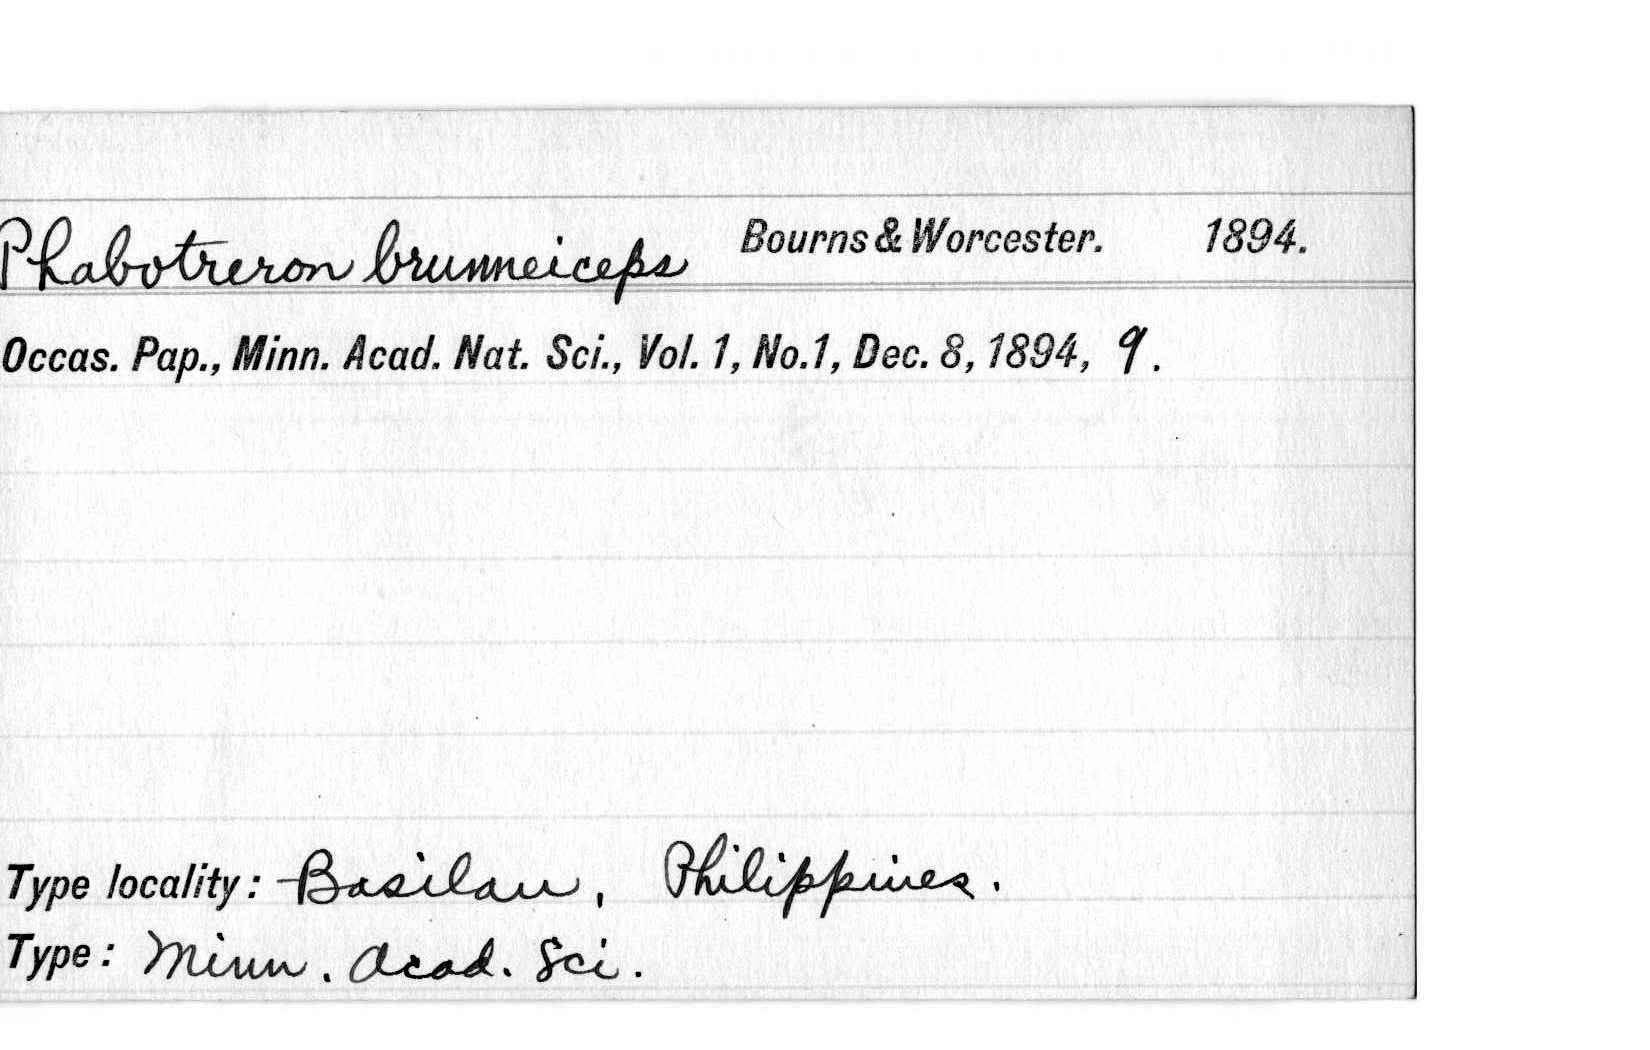 Phabotreron brunneiceps Bourns & Worcester. 1894.
Occas. Pap., Minn. Acad. Nat. Sci., Vol. 1, No.1, Dec. 8, 1894, 9.
Type locality: Basilan, Philippines.
Type: Minn. Acad. Sci.